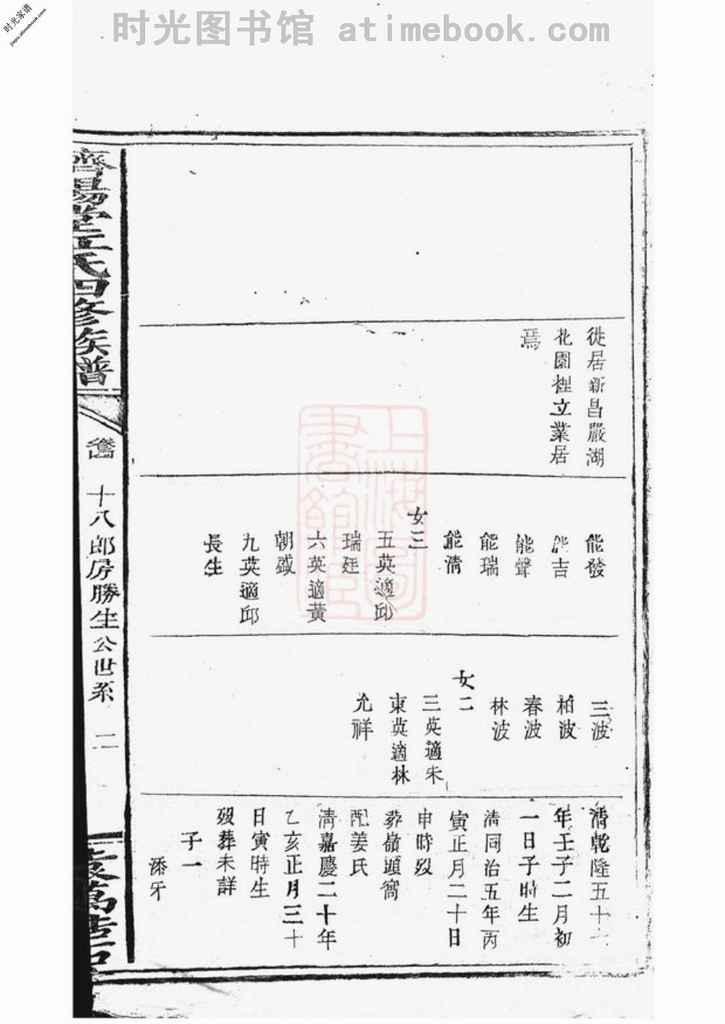 时光图书馆 atimebook.com
时光家谱
濟陽堂江氏四修族譜
十八郎房勝生公世系
二
徙居新昌嚴湖
花園裡立業居
焉
能發
能吉
能聲
能瑞
能清
女三
五英適邱
瑞廷
六英適黄
朝盛
九英適邱
長生
三波
柏波
春波
林波
女二
三英適朱
東英適林
允祥
清乾隆五十
年壬子二月初
一日子時生
清同治五年丙
寅正月二十日
申時歿
葬嶺頭窩
配姜氏
清嘉慶二十年
乙亥正月三十
日寅時生
歿葬未詳
子一
添牙